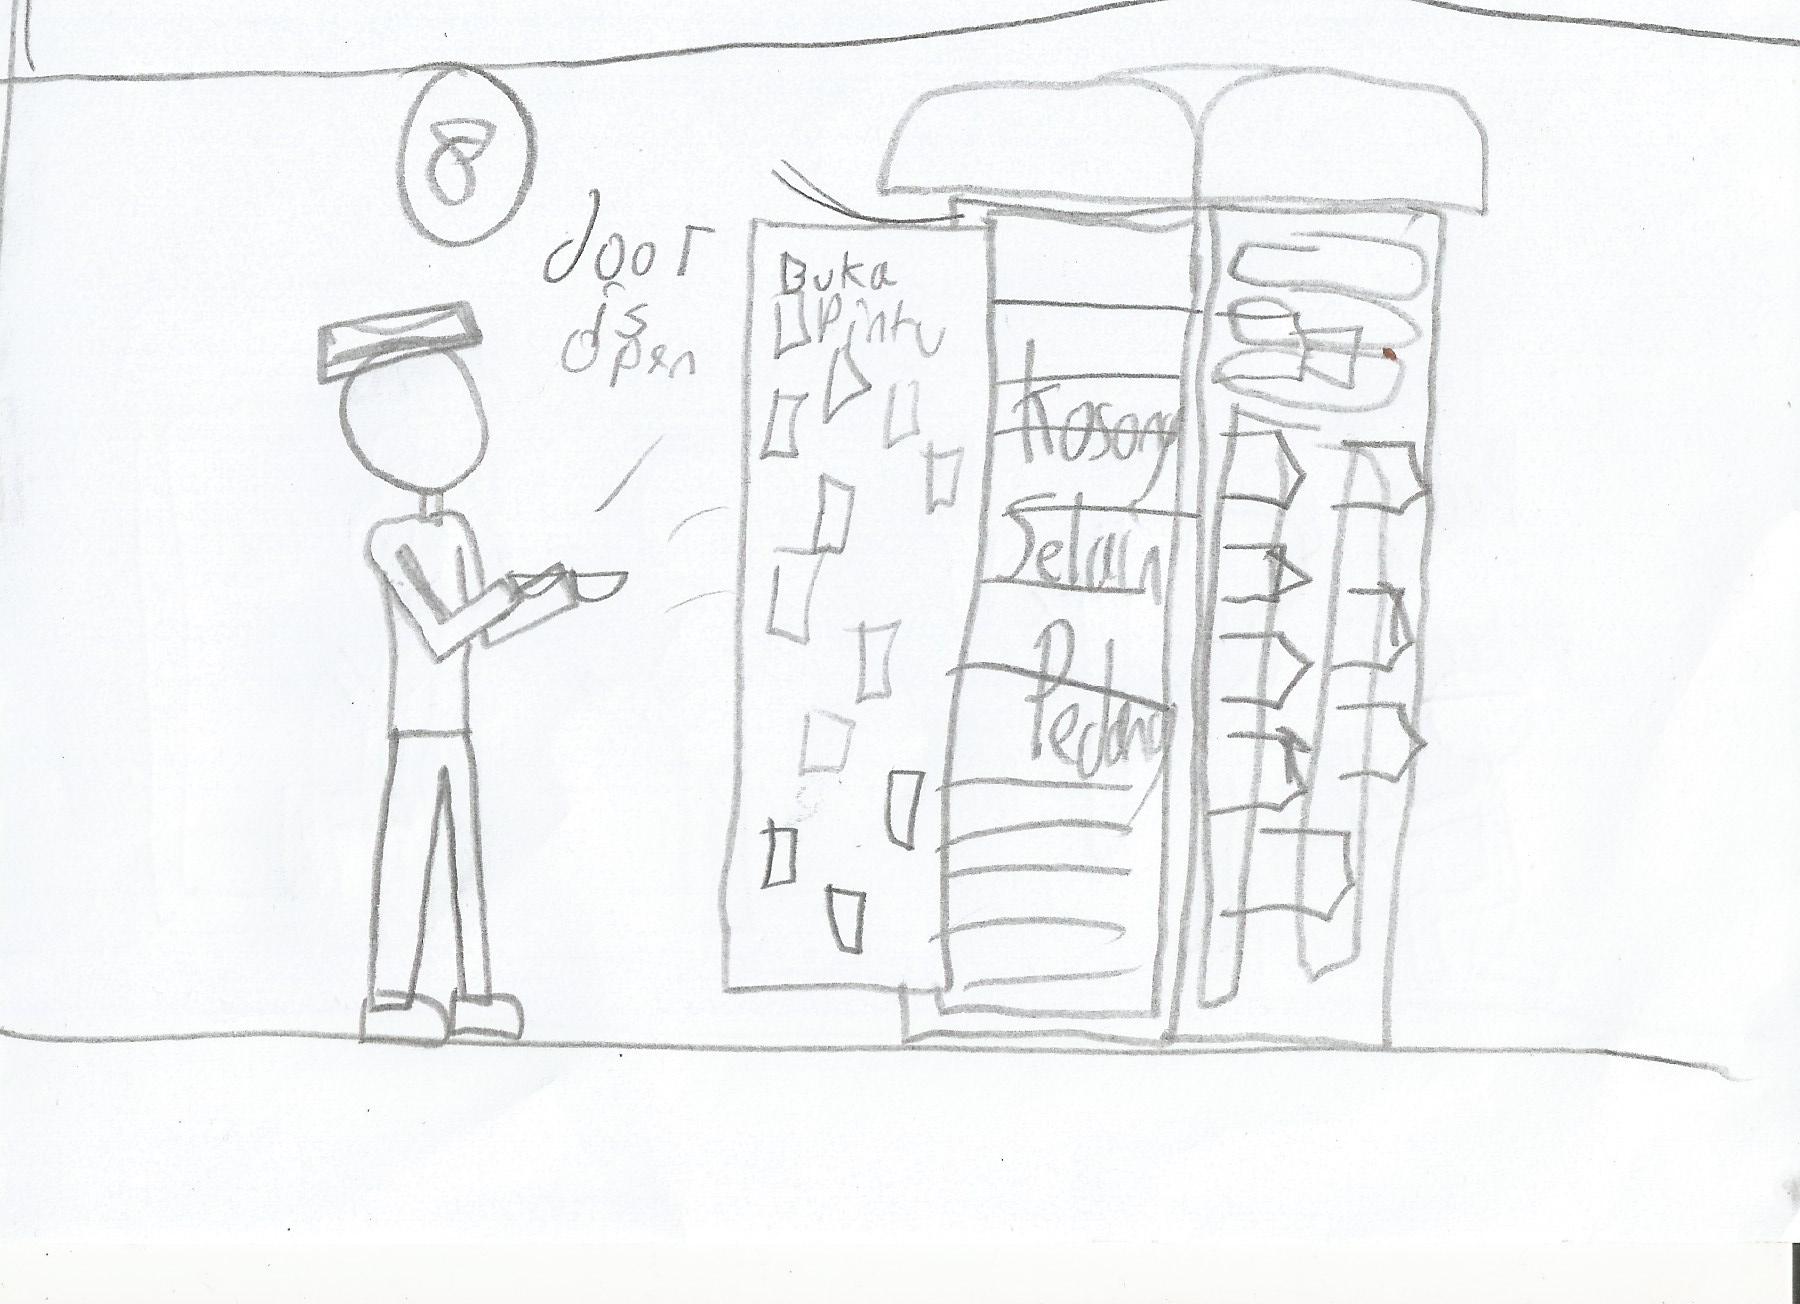 door
is
open
Buka
Pintu
Kosong
Selain
Pedang